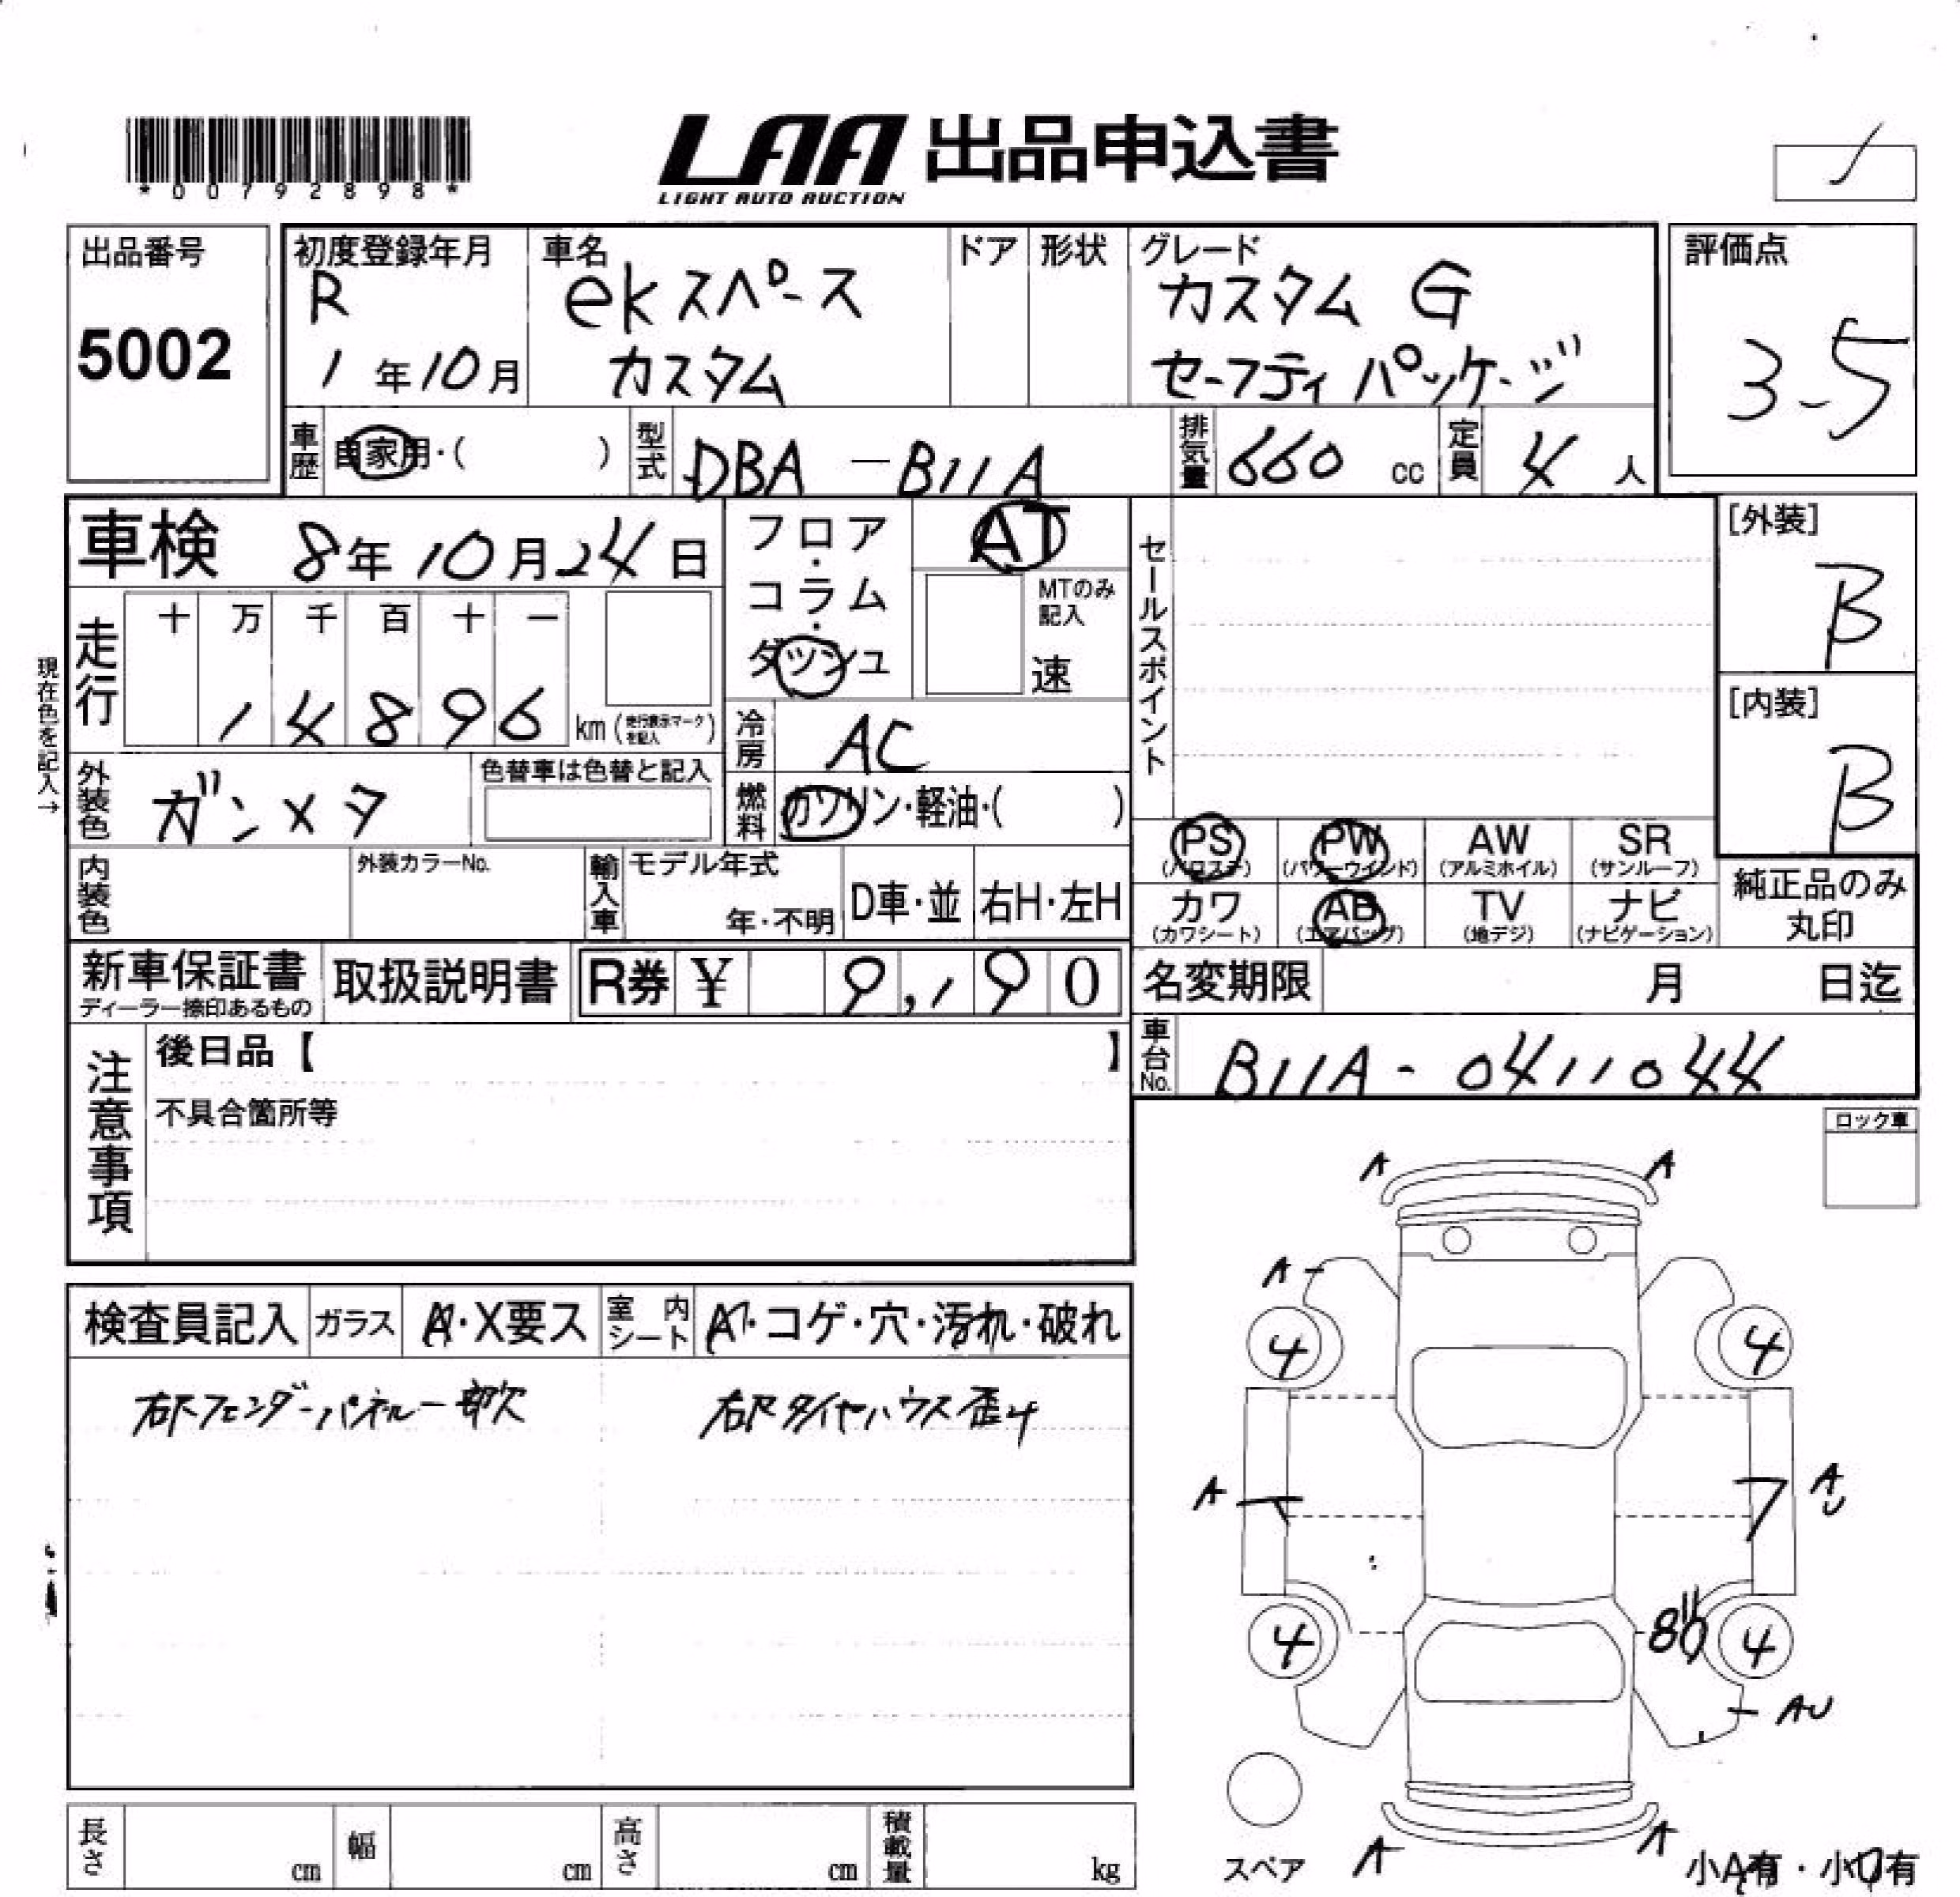 *00792898*
LAA 出品申込書
LIGHT AUTO AUCTION
出品番号
5002
初度登録年月
R
1年10月
車名
ekスペース
カスタム
ドア
形状
グレード
カスタム G
セーフティパッケージ
評価点
3.5
車歴
自家用・( )
型式
DBA-B11A
排気量
660 cc
定員
4人
車検 8年10月24日
フロア・コラム・ダッシュ
AT
MTのみ記入
速
セールスポイント
[外装]
B
[内装]
B
現在色を記入→
走行
十 万 千 百 十 一
1 4 8 9 6
km(走行表示マークを記入)
冷房
AC
外装色
ガンメタ
色替車は色替と記入
燃料
ガソリン・軽油・( )
PS
(パワステ)
PW
(パワーウインド)
AW
(アルミホイル)
SR
(サンルーフ)
カワ
(カワシート)
AB
(エアバッグ)
TV
(地デジ)
ナビ
(ナビゲーション)
純正品のみ
丸印
内装色
外装カラーNo.
輸入車
モデル年式
年・不明
D車・並
右H・左H
新車保証書
ディーラー捺印あるもの
取扱説明書
R券 ¥ 9,190
名変期限
月 日迄
車台No.
B11A-0411044
注意事項
後日品【 】
不具合箇所等
ロック車
検査員記入
ガラス
A・X要ス
室内シート
コゲ・穴・汚れ・破れ
右Rフェンダーパネル一部欠
右Rタイヤハウス歪み
A A
A
4 4
A
A
U
4 4
AU
A A
スペア
小A有・小U有
長さ
cm
幅
cm
高さ
cm
積載量
kg